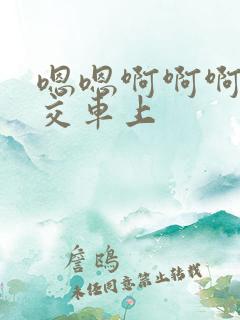 嗯嗯啊啊啊
交车上
詹鸥
未经同意禁止转载